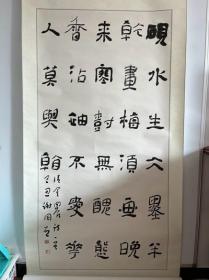 硯水生仌墨半
乾畫梅須畫晚
來寒樹無醜態
香沾袖不愛華
人莫與